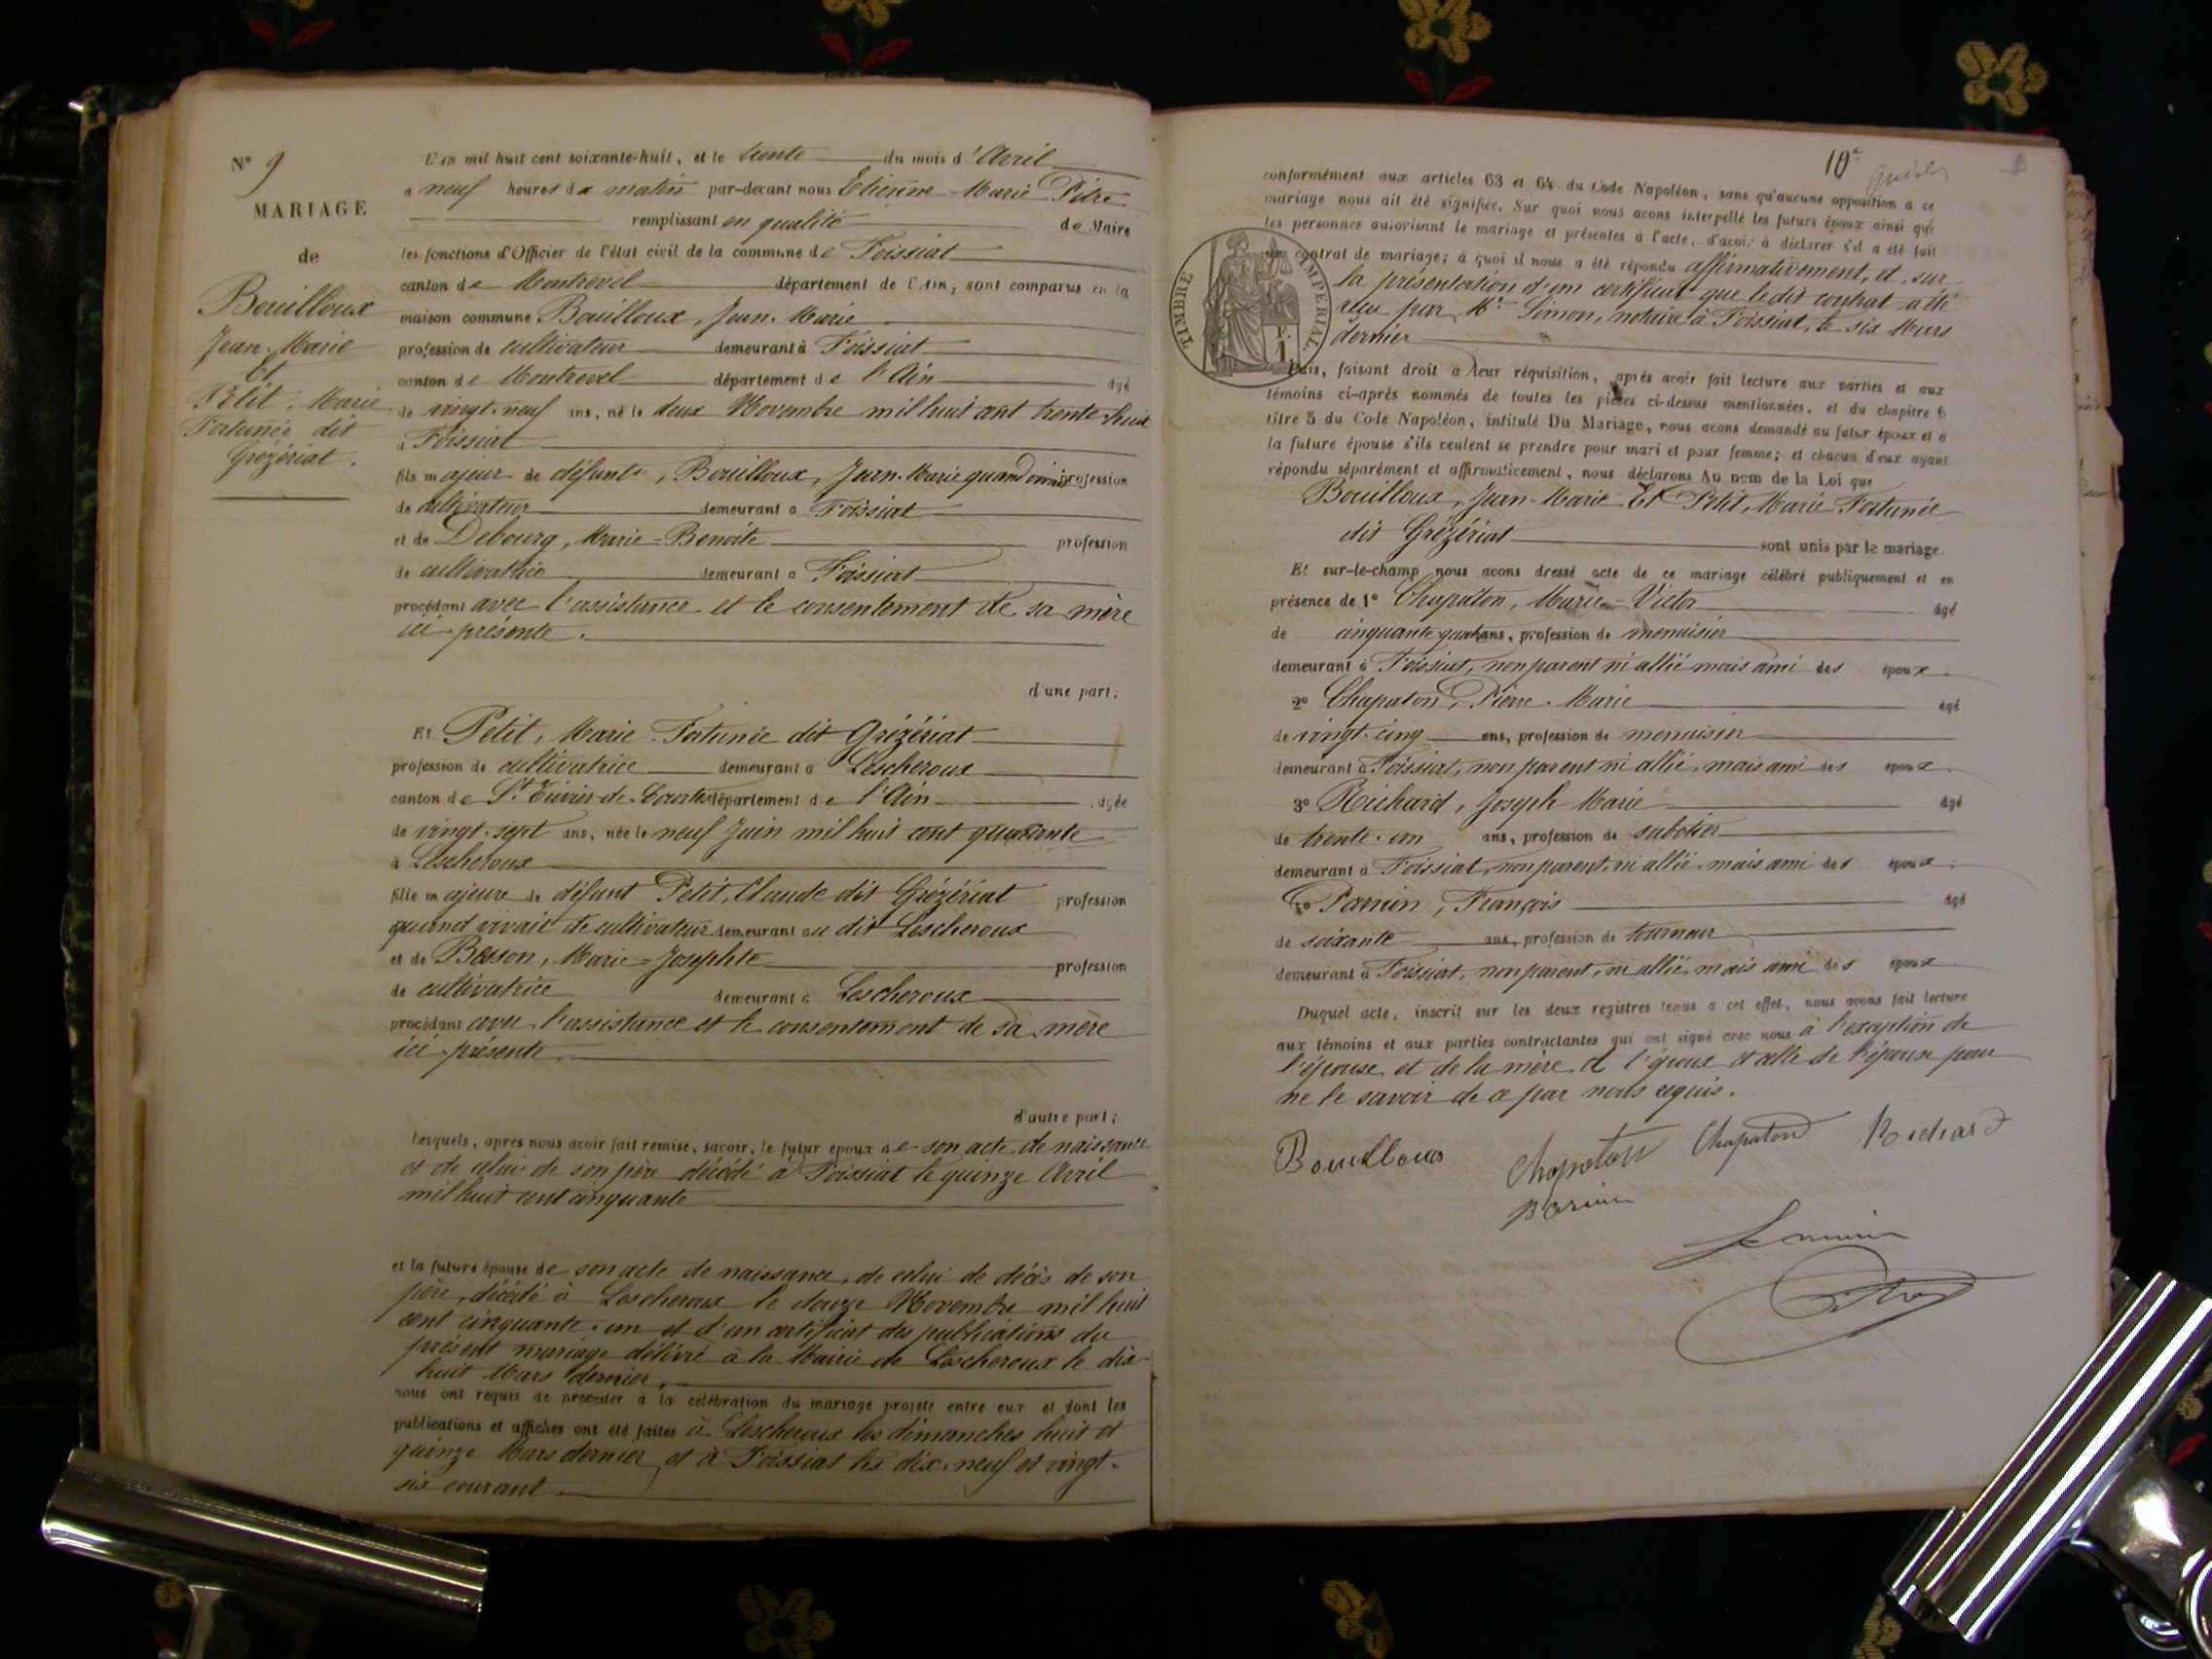 N° 9
MARIAGE
de
Bouilloux
Jean-Marie
Et
Petit, Marie
Fortunée dit
Grézériat.
L'an mil huit cent soixante-huit, et le trente du mois d'Avril
à neuf heures du matin par-devant nous Etienne-Marie Pitre
remplissant en qualité de Maire
les fonctions d'Officier de l'état civil de la commune de Foissiat
canton de Montrevel département de l'Ain, sont comparus en la
maison commune Bouilloux, Jean-Marie
profession de cultivateur demeurant à Foissiat
canton de Montrevel département de l'Ain âgé
de vingt-neuf ans, né le deux Novembre mil huit cent trente-huit
à Foissiat
fils majeur de défunt, Bouilloux, Jean-Marie quand vivait profession
de cultivateur demeurant à Foissiat
et de Debourg, Marie-Benoite profession
de cultivatrice demeurant à Foissiat
procédant avec l'assistance et le consentement de sa mère
ici présente.
d'une part;
Et Petit, Marie-Fortunée dit Grézériat
profession de cultivatrice demeurant à Lescheroux
canton de St Trivier-de-Courtes département de l'Ain âgée
de vingt-sept ans, née le neuf Juin mil huit cent quarante
à Lescheroux
fille majeure de défunt Petit, Claude dit Grézériat profession
quand vivait de cultivateur demeurant au dit Lescheroux
et de Besson, Marie-Josephte profession
de cultivatrice demeurant à Lescheroux
procédant avec l'assistance et le consentement de sa mère
ici présente.
d'autre part;
lesquels, après nous avoir fait remise, savoir, le futur époux de son acte de naissance
et de celui de son père décédé à Foissiat le quinze Avril
mil huit cent cinquante
et la future épouse de son acte de naissance, de celui de décès de son
père, décédé à Lescheroux le douze Novembre mil huit
cent cinquante-un et d'un certificat des publications du
présent mariage délivré à la Mairie de Lescheroux le dix
huit Mars dernier.
nous ont requis de procéder à la célébration du mariage projeté entre eux et dont les
publications et affiches ont été faites à Lescheroux les dimanches huit et
quinze Mars dernier, et à Foissiat les dix-neuf et vingt-
six courant.
10e
conformément aux articles 63 et 64 du Code Napoléon, sans qu'aucune opposition à ce
mariage nous ait été signifiée. Sur quoi nous avons interpellé les futurs époux ainsi que
les personnes autorisant le mariage et présentes à l'acte, d'avoir à déclarer s'il a été fait
un contrat de mariage; à quoi il nous a été répondu affirmativement, et sur
la présentation d'un certificat que ledit contrat a été
reçu par Me Simon, notaire à Foissiat, le six Mars
dernier
TIMBRE IMPÉRIAL
F. 1
Puis, faisant droit à leur réquisition, après avoir fait lecture aux parties et aux
témoins ci-après nommés de toutes les pièces ci-dessus mentionnées, et du chapitre 6
titre 5 du Code Napoléon, intitulé Du Mariage, nous avons demandé au futur époux et à
la future épouse s'ils veulent se prendre pour mari et pour femme; et chacun d'eux ayant
répondu séparément et affirmativement, nous déclarons Au nom de la Loi que
Bouilloux, Jean-Marie Et Petit, Marie-Fortunée
dit Grézériat sont unis par le mariage.
Et sur-le-champ nous avons dressé acte de ce mariage célébré publiquement et en
présence de 1° Chapaton, Marie-Victor âgé
de cinquante quatre ans, profession de menuisier
demeurant à Foissiat, non parent ni allié mais ami des époux.
2° Chapaton, Pierre-Marie âgé
de vingt-cinq ans, profession de menuisier
demeurant à Foissiat, non parent ni allié, mais ami des époux.
3° Richard, Joseph-Marie âgé
de trente-un ans, profession de sabotier
demeurant à Foissiat, non parent, ni allié, mais ami des époux.
4° Parrin, François âgé
de soixante ans, profession de tourneur
demeurant à Foissiat, non parent, ni allié, mais ami des époux
Duquel acte, inscrit sur les deux registres tenus à cet effet, nous avons fait lecture
aux témoins et aux parties contractantes qui ont signé avec nous à l'exception de
l'épouse et de la mère d l'époux et celle de l'épouse pour
ne le savoir de ce par nous requis.
Bouilloux Chapaton Chapaton Richard
Parrin
Le maire
Pitre